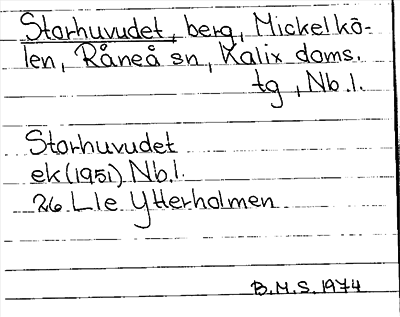 Storhuvudet, berg, Mickelkö-
len, Råneå sn, Kalix doms.
tg, Nb.l.
Storhuvudet
ek(1951) Nb.l.
26 L1e Ytterholmen
B.M.S. 1974